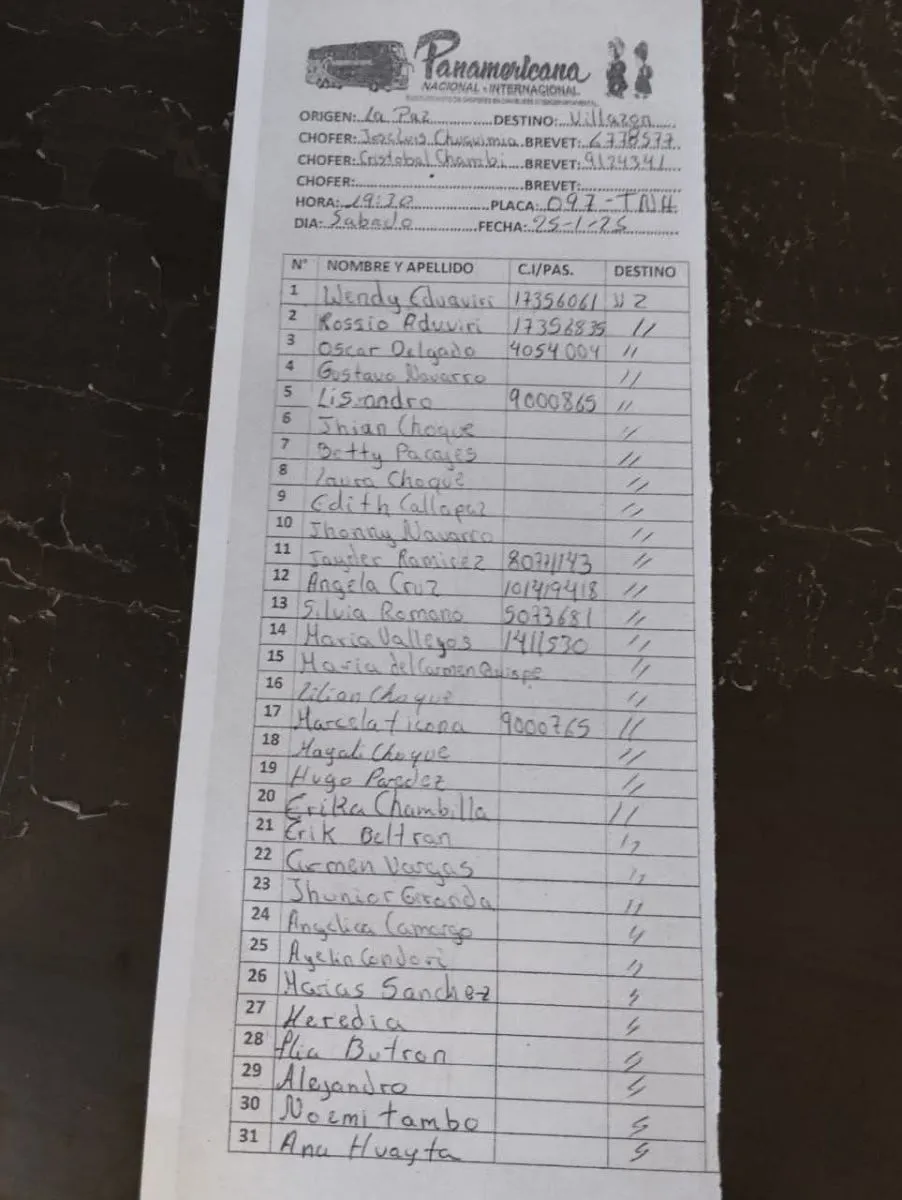 Panamericana
NACIONAL - INTERNACIONAL
ORIGEN: La Paz DESTINO: Villazon
CHOFER: Jose Luis Chuquimia BREVET: 6778577
CHOFER: Cristobal Chambi BREVET: 9124341
CHOFER: BREVET:
HORA: 19:30 PLACA: 097-TNH
DIA: Sabado FECHA: 25-1-25
N° NOMBRE Y APELLIDO C.I/PAS. DESTINO
1 Wendy Eduaviri 17356061
2 Rossio Aduviri 17356835 //
3 Oscar Delgado 4054004 //
4 Gustavo Navarro //
5 Lisandro 9000865 //
6 Jhian Choque //
7 Betty Pacajes //
8 Laura Choque //
9 Edith Callapaz //
10 Jhonny Navarro //
11 Ramirez //
12 Angela Cruz 101419418 //
13 Silvia Romano 5073681 //
14 Maria Vallegos 1411530 //
15 Maria del Carmen Quispe //
16 Lilian Choque //
17 Marcela ticona 9000765 //
18 Magali Choque //
19 Hugo Paredez //
20 Erika Chambilla //
21 Erik Beltran //
22 Carmen Vargas //
23 Jhunior Geronda //
24 Angelica Camargo //
25 Ayelin Condori //
26 Marias Sanchez
27 Heredia
28 Butron
29 Alejandro
30 Noemi tambo
31 Ana Huayta